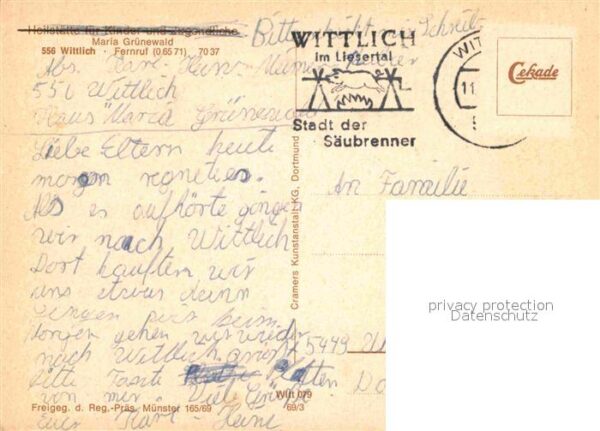 Heilstätte für Kinder und Jugendliche
Maria Grünewald
556 Wittlich · Fernruf (0 65 71) 70 37
Bitte
Abs. Karl-Heinz
550 Wittlich
Haus "Maria Grünewald
Liebe Eltern heute
morgen regnet es.
Als es aufhörte gingen
wir nach Wittlich
Dort kauften wir
uns etwas dann
gingen wir heim.
Morgen gehen wir wieder
nach Wittlich
Bitte Tante
von mir Viele Grüße
Euer Karl-Heinz
Freigeg. d. Reg.-Präs. Münster 165/69
Witt 079
69/3
Cramers Kunstanstalt KG, Dortmund
WITTLICH
im Liesertal
Stadt der
Säubrenner
WIT
11
Cekade
An Familie
5449
privacy protection
Datenschutz